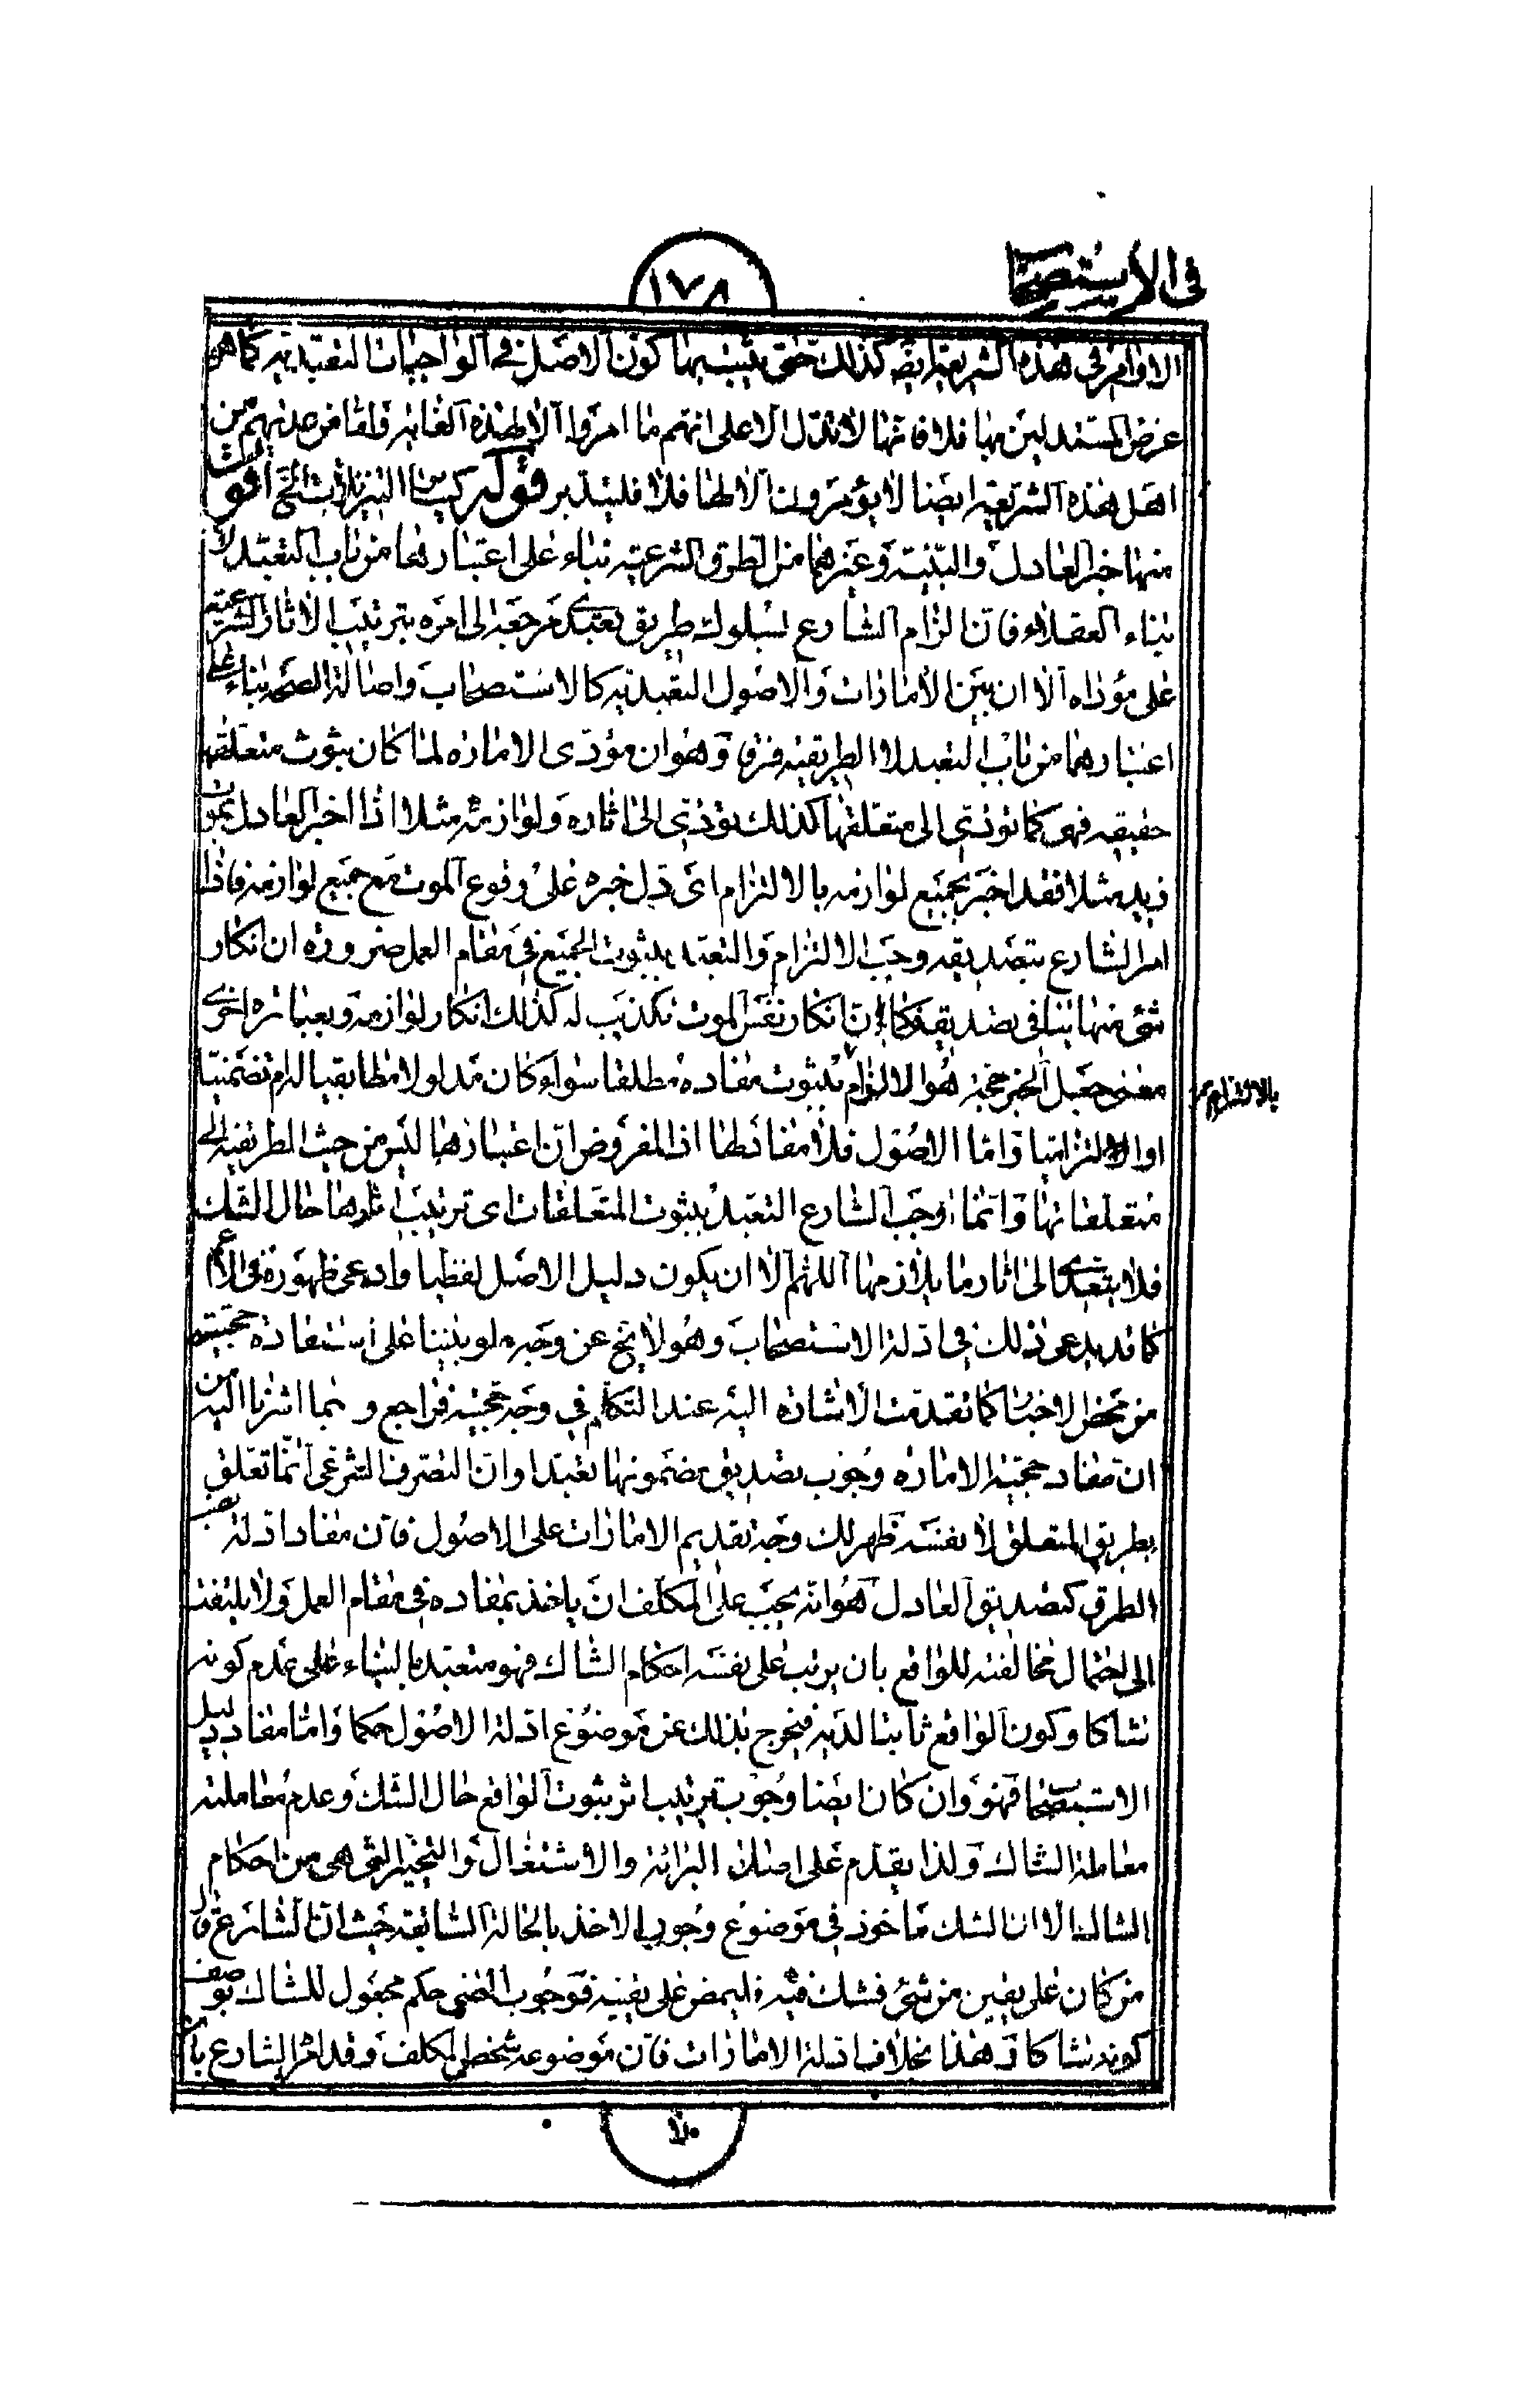 في الاستصحاب
١٧٨
الاوامر في هذه الشريعة ايض كذلك حتى يثبت بها كون الاصل في الواجبات التعبدية كما هو
غرض المستدلين بها فلا فانها لا تدل الا على انهم ما امروا الا لهذه الغاية فلقا من صدنهم من
اهل هذه الشريعة ايضا لا يؤمرون الا لها فلا فليتدبر قوله كسائر التنزيلات الخ اقول
منها خبر العادل والبينة وغيرهما من الطرق الشرعية بناء على اعتبارهما من باب التعبد لا
بناء العقلاء فان الزام الشارع بسلوك طريق تعبدى مرجعه الى امره بترتيب الاثار الشرعية
على مؤداه الا ان بين الامارات والاصول التعبدية كالاستصحاب واصالة الصحة بناء على
اعتبارهما من باب التعبد لا الطريقية فرق وهو ان مؤدى الامارة لما كان ثبوت متعلقها
حقيقة فهى كما تؤدى الى متعلقها كذلك تؤدى الى اثاره ولوازمه مثلا اذا اخبر العادل بموت
زيد مثلا فقد اخبر بجميع لوازمه بالالتزام اى دل خبره على وقوع الموت مع جميع لوازمه فاذا
امر الشارع بتصديقه وجب الالتزام والتعبد بثبوت الجميع في مقام العمل ضرورة ان انكار
شئ منها ينافي تصديقه كما ان انكار نفس الموت تكذيب له كذلك انكار لوازمه وبعبارة اخرى
معنى جعل الخبر حجة هو الالزام بثبوت مفاده مطلقا سواء كان مدلولا مطابقيا له ام تضمنيا
بالالتزام
او الالتزاميا واما الاصول فلا مفاد لها اذ المفروض ان اعتبارها ليس من حيث الطريقية الى
متعلقاتها وانما اوجب الشارع التعبد بثبوت المتعلقات اى ترتيب اثارها حال الشك
فلا يتعدى الى اثار ما يلازمها اللهم الا ان يكون دليل الاصل لفظيا وادعى ظهوره في الاعم
كما قد يدعى ذلك في ادلة الاستصحاب وهو لا يخ عن وجه لو بنينا على استفادة حجيته
من محض الاخبار كما تقدمت الاشارة اليه عند التكلم في وجه حجيته فراجع ومما اشرنا اليه من
ان مفاد حجية الامارة وجوب تصديق مضمونها تعبدا وان التصرف الشرعى انما تعلق
بطريق المتعلق لا بنفسه ظهر لك وجه تقديم الامارات على الاصول فان مفاد ادلة نصب
الطرق كتصديق العادل هو انه يجب على المكلف ان ياخذ بمفاده في مقام العمل ولا يلتفت
الى احتمال مخالفته للواقع بان يرتب على نفسه احكام الشاك فهو متعبد بالبناء على عدم كونه
شاكا وكون الواقع ثابتا لديه فيخرج بذلك عن موضوع ادلة الاصول حكما واما مفاد دليل
الاستصحاب فهو وان كان ايضا وجوب ترتيب اثر ثبوت الواقع حال الشك وعدم معاملته
معاملة الشاك ولذا يقدم على اصالة البرائة والاشتغال والتخيير التى هى من احكام
الشاك الا ان الشك ماخوذ في موضوع وجوب الاخذ بالحالة السابقة حيث ان الشارع قال
من كان على يقين من شئ فشك فيه فليمض على يقينه فوجوب المضى حكم مجعول للشاك بوصف
كونه شاكا وهذا بخلاف ادلة الامارات فان موضوعه شخص المكلف وقد امر الشارع بان